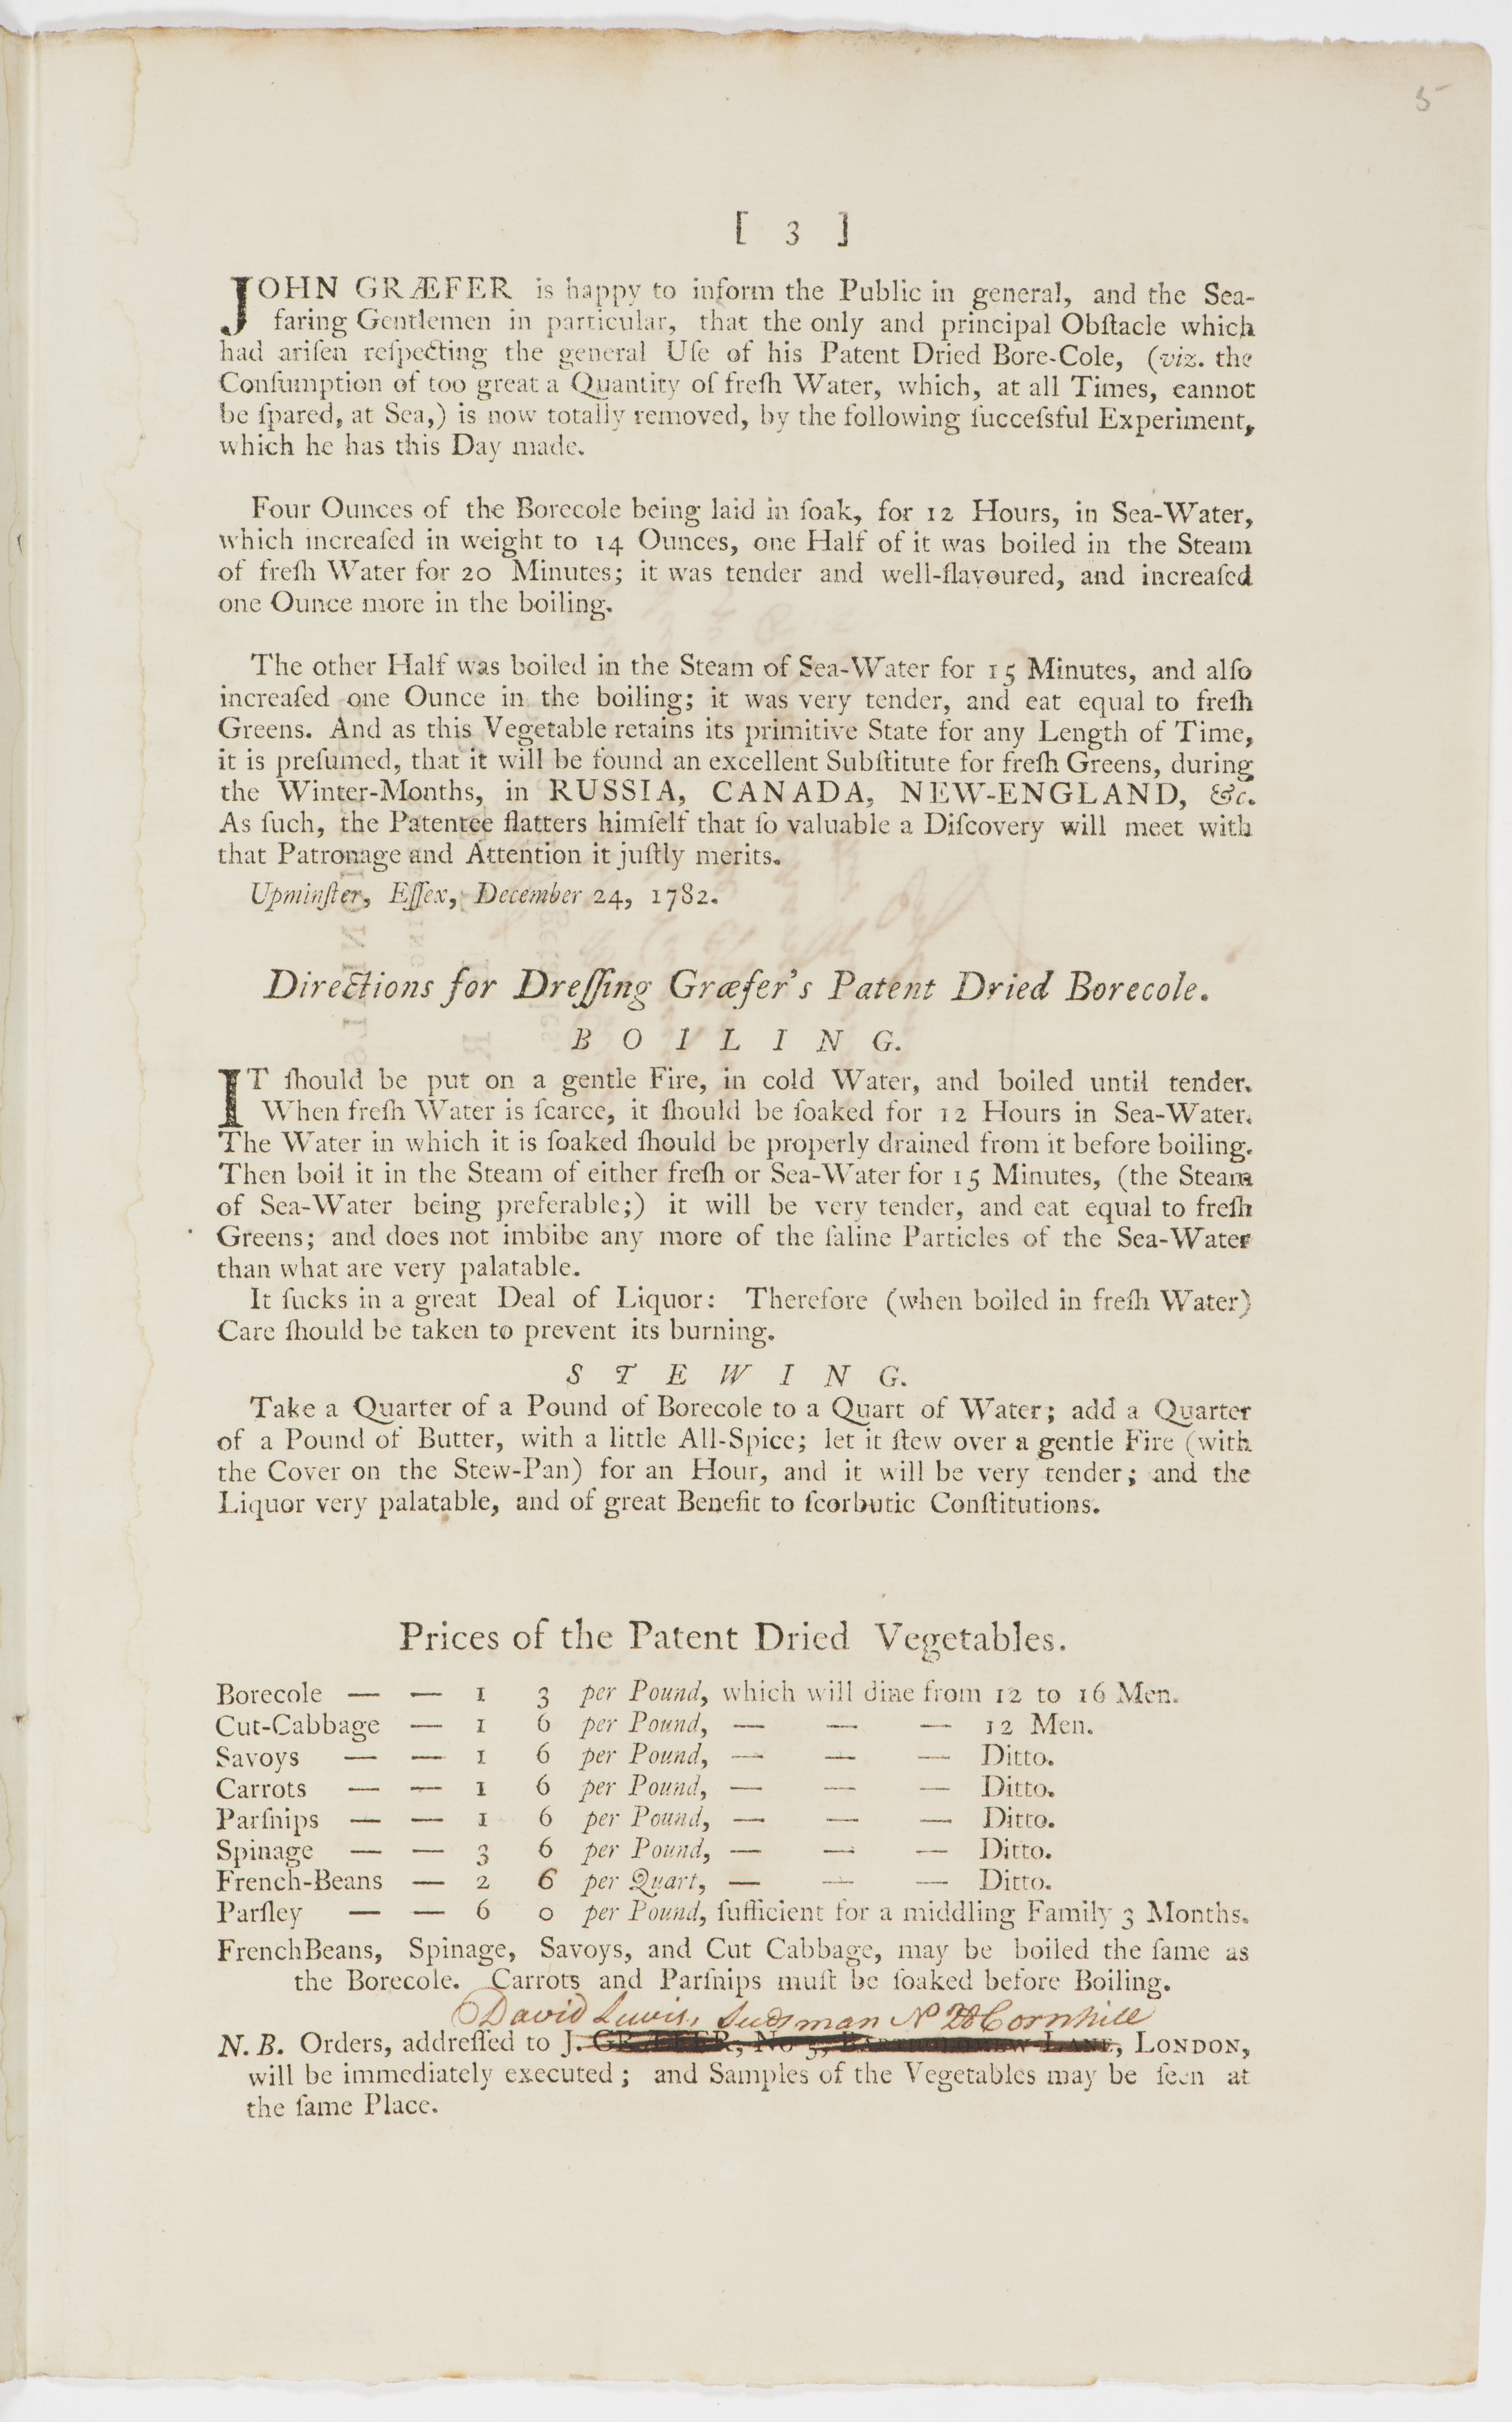 5
[ 3 ]
JOHN GRÆFER is happy to inform the Public in general, and the Sea-
faring Gentlemen in particular, that the only and principal Obſtacle which
had ariſen reſpecting the general Uſe of his Patent Dried Bore-Cole, (viz. the
Conſumption of too great a Quantity of freſh Water, which, at all Times, cannot
be ſpared, at Sea,) is now totally removed, by the following ſucceſsful Experiment,
which he has this Day made.
Four Ounces of the Borecole being laid in ſoak, for 12 Hours, in Sea-Water,
which increaſed in weight to 14 Ounces, one Half of it was boiled in the Steam
of freſh Water for 20 Minutes; it was tender and well-flavoured, and increaſed
one Ounce more in the boiling.
The other Half was boiled in the Steam of Sea-Water for 15 Minutes, and alſo
increaſed one Ounce in the boiling; it was very tender, and eat equal to freſh
Greens. And as this Vegetable retains its primitive State for any Length of Time,
it is preſumed, that it will be found an excellent Subſtitute for freſh Greens, during
the Winter-Months, in RUSSIA, CANADA, NEW-ENGLAND, &c.
As ſuch, the Patentee flatters himſelf that ſo valuable a Diſcovery will meet with
that Patronage and Attention it juſtly merits.
Upminſter, Eſſex, December 24, 1782.
Directions for Dreſſing Græfer's Patent Dried Borecole.
B O I L I N G.
IT ſhould be put on a gentle Fire, in cold Water, and boiled until tender.
When freſh Water is ſcarce, it ſhould be ſoaked for 12 Hours in Sea-Water.
The Water in which it is ſoaked ſhould be properly drained from it before boiling.
Then boil it in the Steam of either freſh or Sea-Water for 15 Minutes, (the Steam
of Sea-Water being preferable;) it will be very tender, and eat equal to freſh
Greens; and does not imbibe any more of the ſaline Particles of the Sea-Water
than what are very palatable.
It ſucks in a great Deal of Liquor: Therefore (when boiled in freſh Water)
Care ſhould be taken to prevent its burning.
S T E W I N G.
Take a Quarter of a Pound of Borecole to a Quart of Water; add a Quarter
of a Pound of Butter, with a little All-Spice; let it ſtew over a gentle Fire (with
the Cover on the Stew-Pan) for an Hour, and it will be very tender; and the
Liquor very palatable, and of great Benefit to ſcorbutic Conſtitutions.
Prices of the Patent Dried Vegetables.
Borecole — — 1 3 per Pound, which will dine from 12 to 16 Men.
Cut-Cabbage — 1 6 per Pound, — — — 12 Men.
Savoys — — 1 6 per Pound, — — — Ditto.
Carrots — — 1 6 per Pound, — — — Ditto.
Parſnips — — 1 6 per Pound, — — — Ditto.
Spinage — — 3 6 per Pound, — — — Ditto.
French-Beans — 2 6 per Quart, — — — Ditto.
Parſley — — 6 0 per Pound, ſufficient for a middling Family 3 Months.
FrenchBeans, Spinage, Savoys, and Cut Cabbage, may be boiled the ſame as
the Borecole. Carrots and Parſnips muſt be ſoaked before Boiling.
David Lewis, Seedsman No Cornhill
N. B. Orders, addreſſed to J. GRÆFER, No 3, BARTHOLOMEW LANE, LONDON,
will be immediately executed; and Samples of the Vegetables may be ſeen at
the ſame Place.